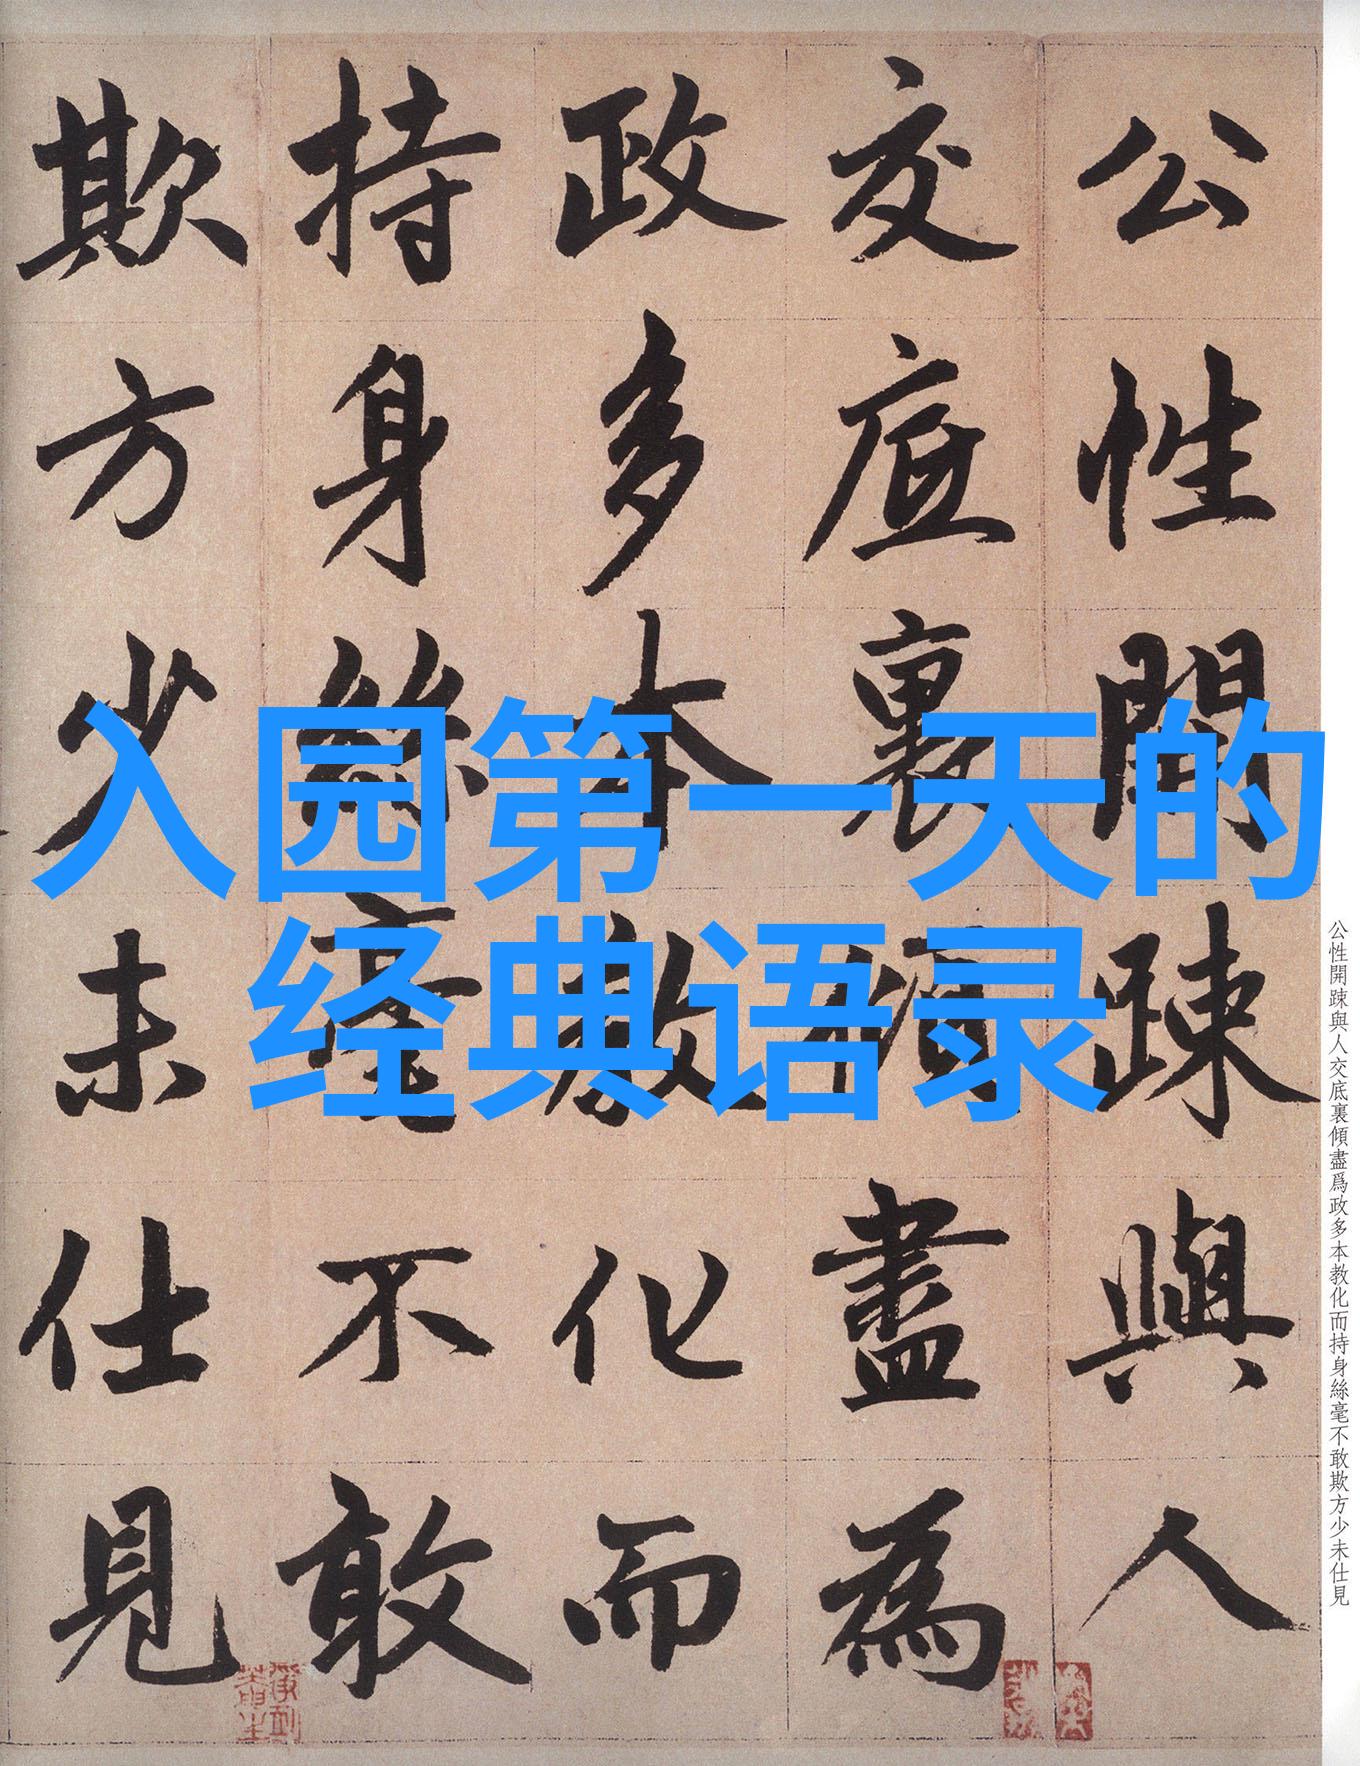 公性開踈與人
交底裏傾盡為
政多本教化而
持身絲毫不敢
欺方少未仕見
入园第一天的
经典语录
公性開踈與人交底裏傾盡爲政多本教化而持身絲毫不敢欺方少未仕見